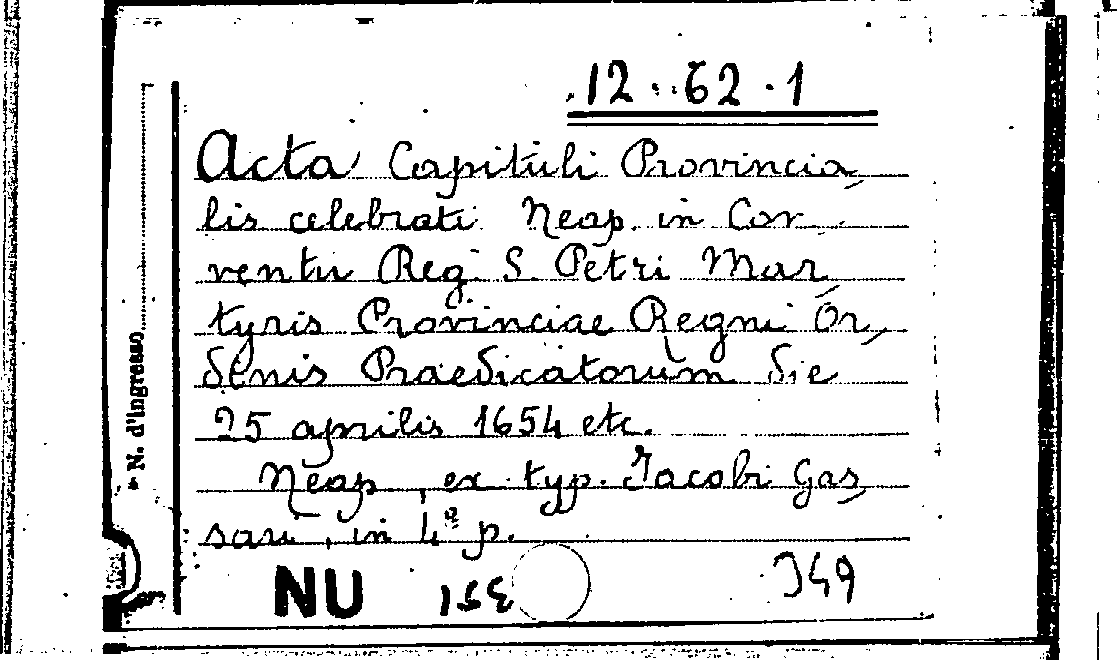 12 . 62 . 1
Acta Capituli Provincia,
lis celebrati Neap. in Con,
ventu Reg. S. Petri Mar,
tyris Provinciae Regni Or,
denis Praedicatorum die
25 aprilis 1654 etc.
Neap, ex typ. Jacobi Gas,
sari, in 4º p.
N. d'ingresso
NU
349